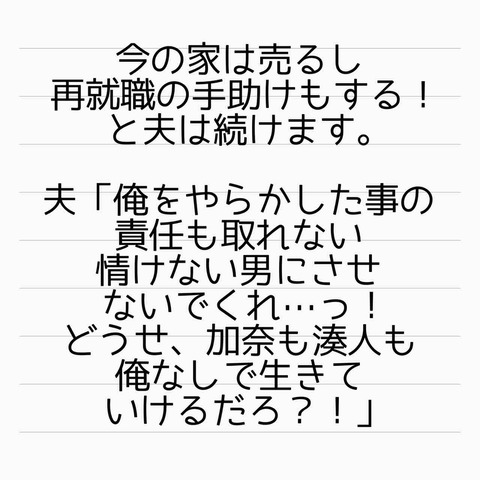 今の家は売るし
再就職の手助けもする！
と夫は続けます。
夫「俺をやらかした事の
責任も取れない
情けない男にさせ
ないでくれ…っ！
どうせ、加奈も湊人も
俺なしで生きて
いけるだろ？！」